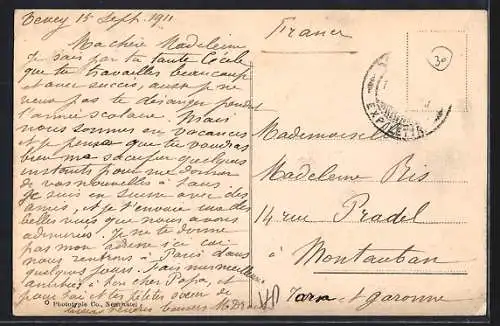 Vevey 15 Sept. 1911
Ma chère Madeleine
Je sais par ta tante Cécile
que tu travailles beaucoup
et avec succès, aussi je ne
veux pas te déranger pendant
l'année scolaire. Mais
nous sommes en vacances
et je pense que tu voudras
bien me sacrifier quelques
instants pour me donner
de vos nouvelles à tous.
Je suis en Suisse avec des
amis, et je t'envoie une des
belles vues que nous avons
admirées. Je ne te donne
pas mon adresse ici car
nous rentrons à Paris dans
quelques jours. Mais
amitiés à ton cher Papa, et
pour toi et tes petites sœurs
tendres baisers
© Phototypie Co., Neuchâtel
France
30
EXP. LETTR.
Mademoiselle
Madeleine Ris
14 rue Pradel
à
Montauban
Tarn-et-Garonne